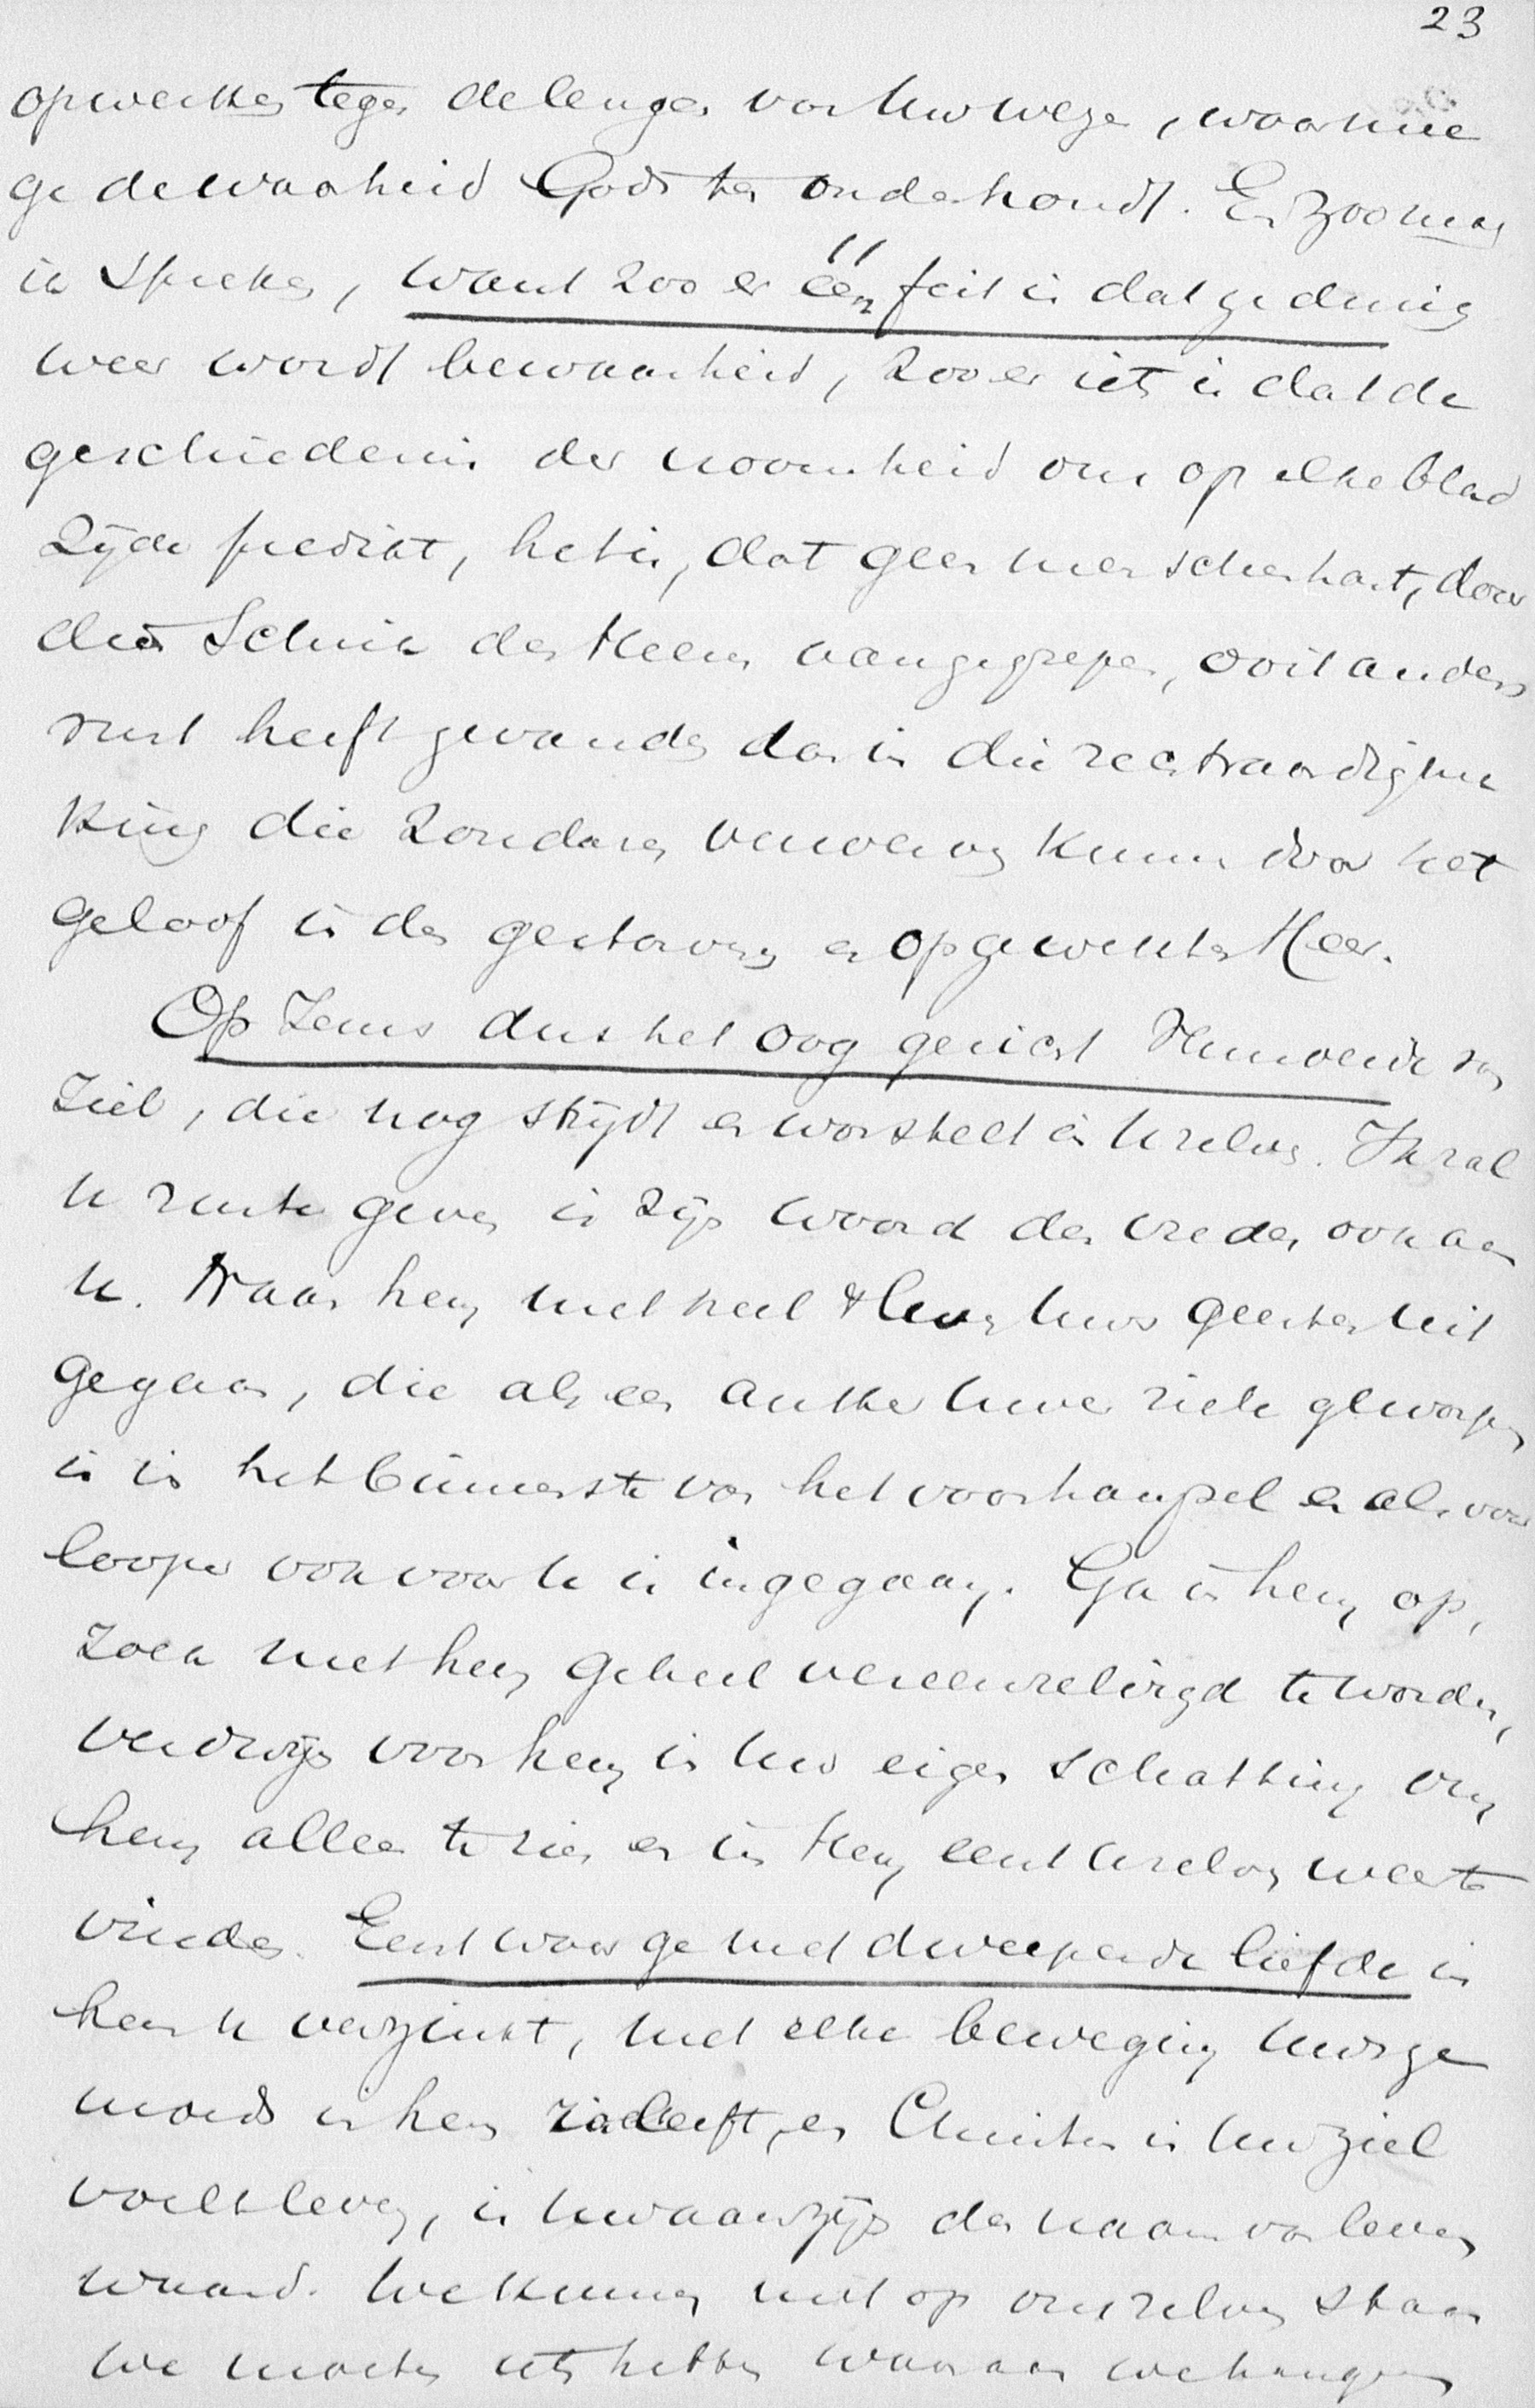 23
opwekken tegen de leugen van Uw wege, waarmee
ge de waarheid Gods ten onderhoudt. En zoo mag
ik spreken, want zoo er één feit is dat gedurig
weer wordt bewaarheid, zoo er iets is dat de
geschiedenis der vroomheid ons op elke blad
zijde predikt, het is, dat geen menschenhart, door
den schrik des Heeren aangegrepen, ooit anders
rust heeft gevonden dan in die rechtvaardigma
king die zondaren verwerven kunnen door het
geloof in den gestorven en opgewekten Heer.
Op Jezus dus het oog gericht vermoeide van
ziel, die nog strijdt en worstelt in Uzelven. Ik zal
U ruste geven is zijn woord des vredes ook aan
U. Naar hem met heel 't leven Uws geestes uit
gegaan, die als een anker Uwer ziele geworpen
is in het binnenste van het voorhangsel en als voor
looper ook voor U is ingegaan. Ga in hem op,
zoek met hem geheel vereenzelvigd te worden,
verdwijn voor hem in Uw eigen schatting om
hem alleen te zien en in Hem eerst Uzelven weer te
vinden. Eerst waar ge met dweepende liefde in
hem U verzinkt, met elke beweging Uws ge
moeds in hem inleeft, en Christus in Uw ziel
voelt leven, is Uw aanzijn den naam van leven
waard. We kunnen niet op onszelven staan
we moeten iets hebben waaraan we hangen